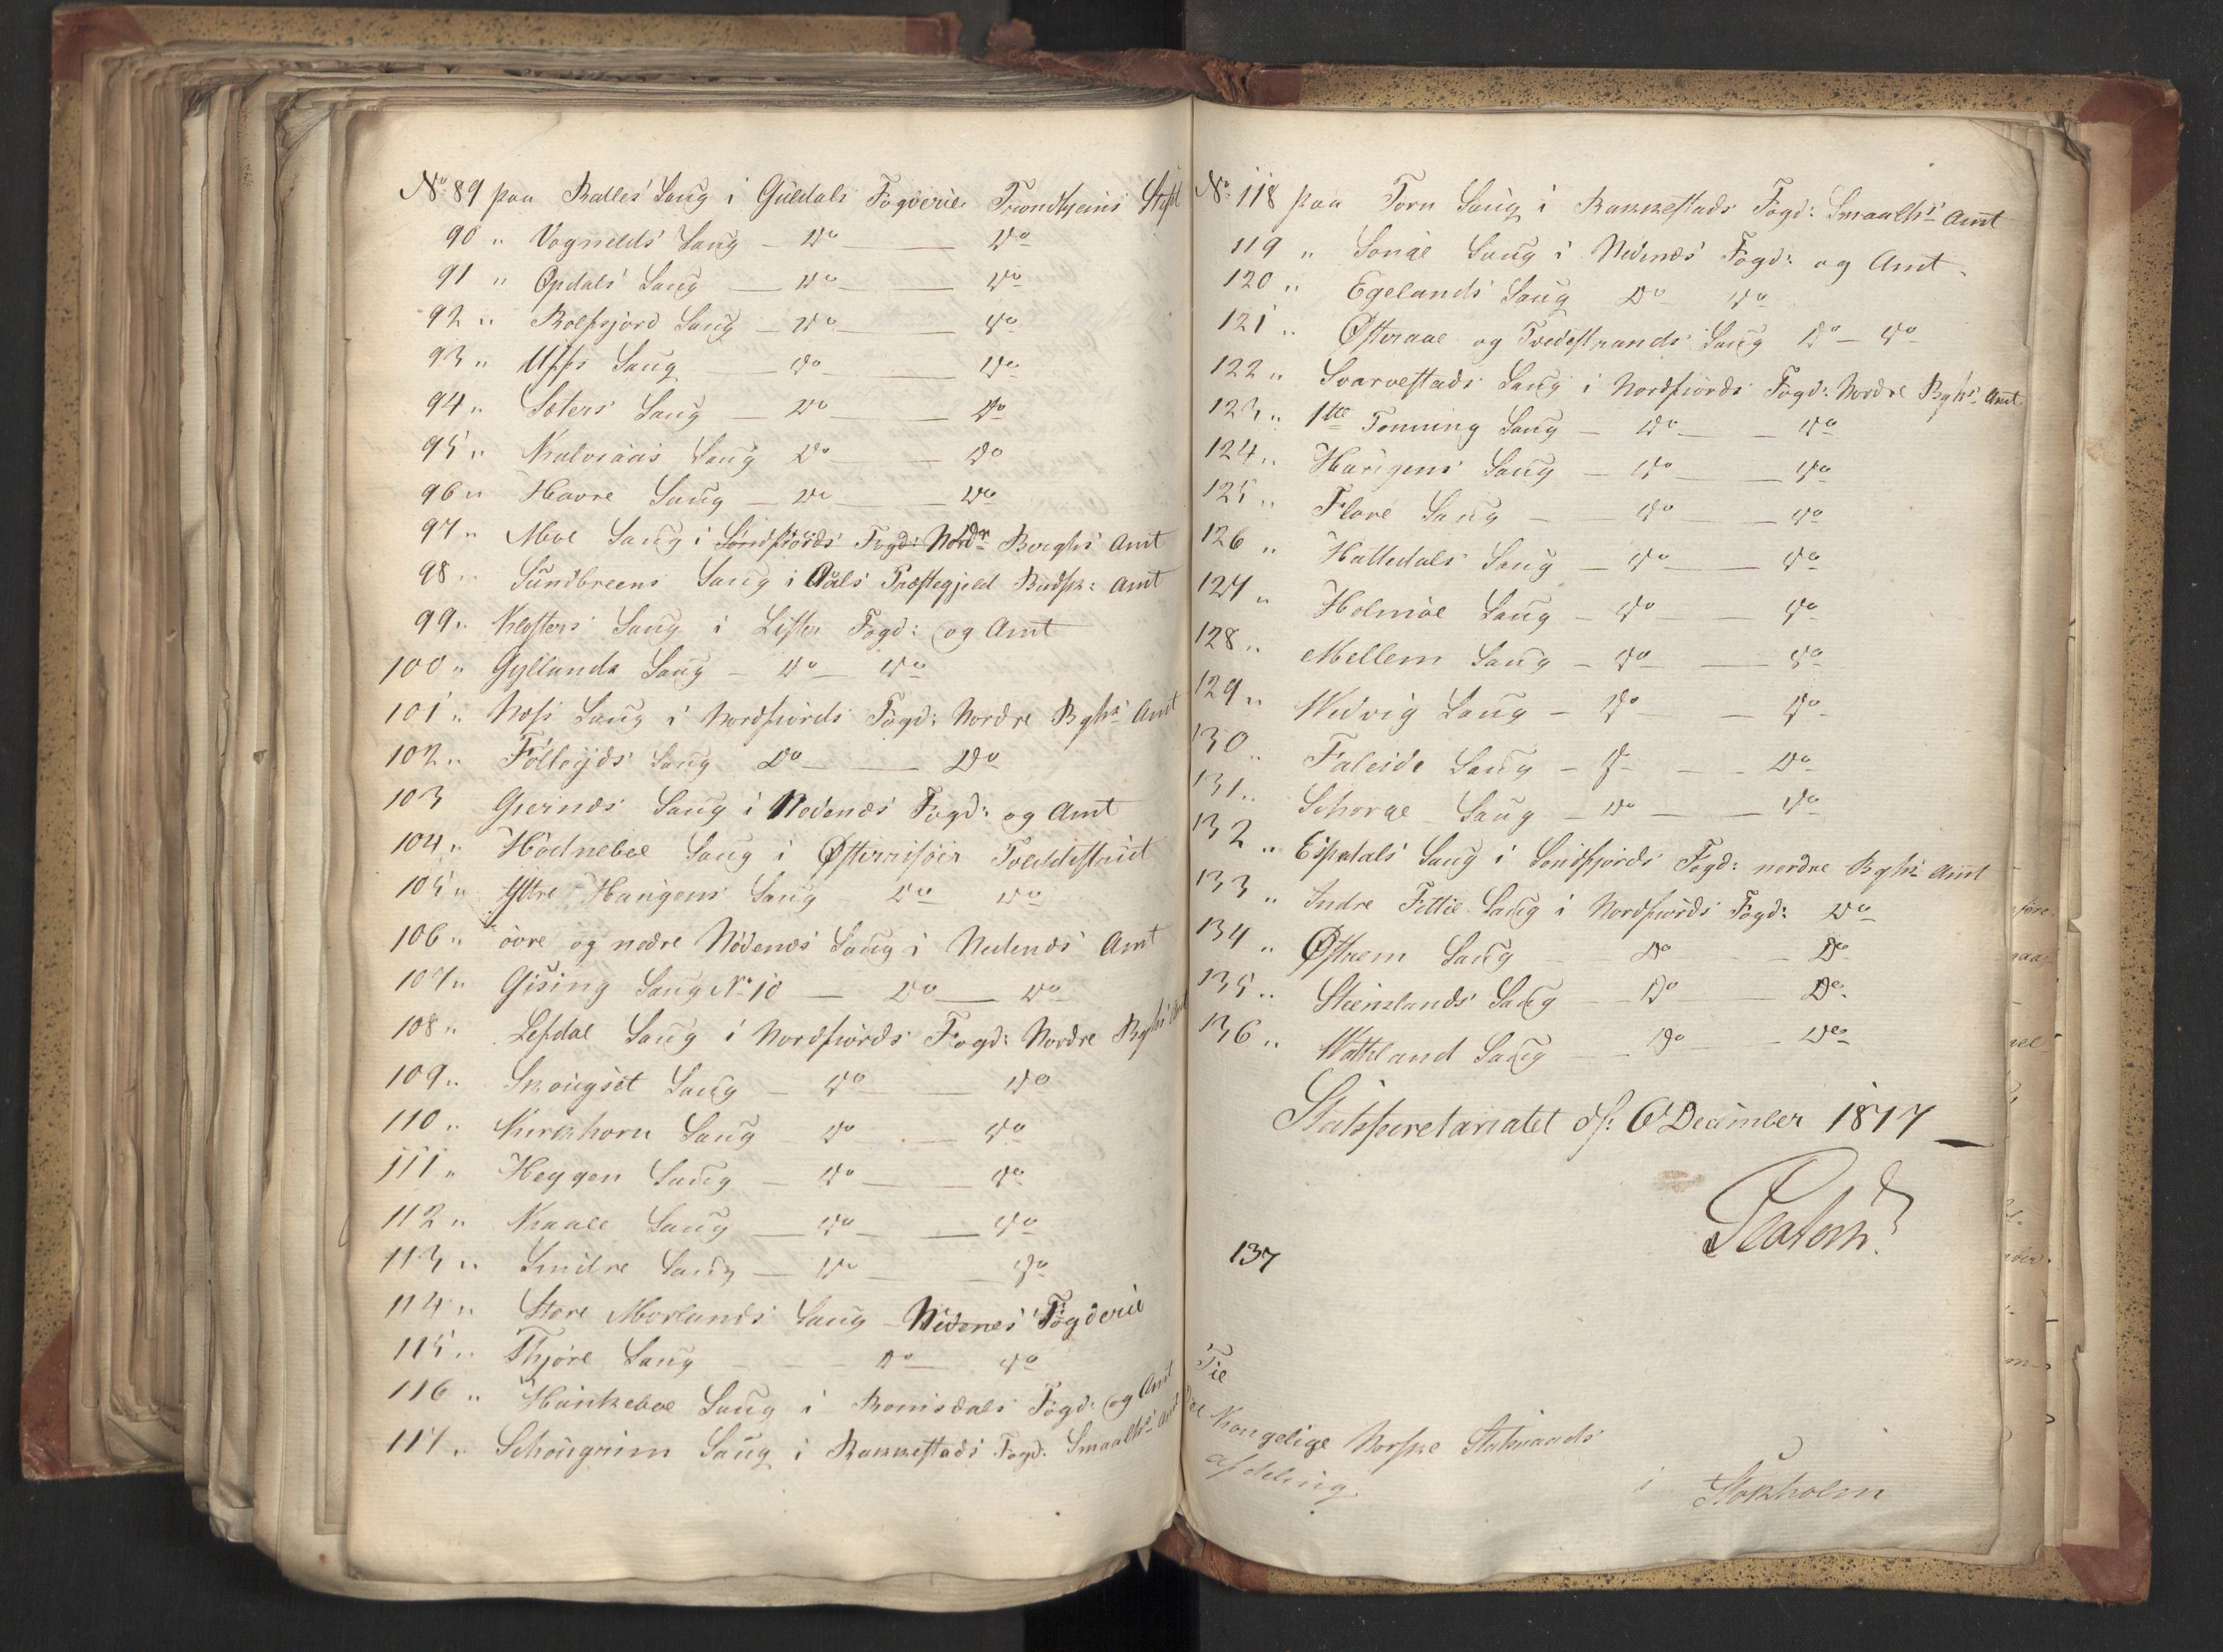 No 89 paa Balles Saug i Guldals Fogderie Trondhjems Stift
90 " Vognelds Saug - Do - Do
91 " Opdals Saug - Do - Do
92 " Rolfsjord Saug - Do - Do
93 " Upps Saug - Do - Do
94 " Sæters Saug - Do - Do
95 " Kalvaas Saug Do - Do
96 " Havre Saug - Do - Do
97 " Moe Saug i Søndfiords Fogd: Nordr Berghs Amt
98 " Sundbreens Saug i Aals Præstegjeld Budsk: Amt
99 " Klosters Saug i Lister Fogd: og Amt
100 " Gyllands Saug - Do - Do
101 " Næss Saug i Nordfiords Fogd: Nordre Bghs Amt
102 " Folløÿds Saug Do - Do
103 Giernæs Saug i Nedenæs Fogd: og Amt
104 " Hødneboe Saug i Østerrisöer Tolddistrict
105 " Ytre Haugens Saug Do Do
106 " övre og nedre Nödenæs Saug i Nedenæs Amt
107 " Gising Saug No 10 - Do - Do
108 " Lefdal Saug i Nordfiords Fogd: Nordre Bghs Amt
109 " Skougset Saug - Do - Do
110 " Kirkhorn Saug - Do - Do
111 " Heggen Saug - Do - Do
112 " Kaale Saug - Do - Do
113 " Smilre Saug - Do - Do
114 " Store Morlands Saug - Nedenes Fogderie
115 " Thjöre Saug - - - Do - Do
116 " Hankeboe Saug i Romsdals Fogd: og Amt
117 " Schougrim Saug i Rakkestads Fogd: Smaalhs Amt
No 118 paa Torn Saug i Rakkestads Fogd: Smaalhs Amt
119 " Songe Saug i Nedenæs Fogd: og Amt
120 " Egelands Saug Do Do
121 " Østeraae og Tvedestrands Saug Do - Do
122 " Svarvestads Saug i Nordfiords Fogd: Nordre Bghs Amt
123 " 1ste Tonning Saug - Do - Do
124 " Haugens Saug - Do - Do
125 " Flore Saug - Do - Do
126 " Halledals Saug - Do - Do
127 " Holmöe Saug - Do - Do
128 " Mellem Saug - Do - Do
129 " Nedvig Saug - Do - Do
130 " Faleide Saug - Do - Do
131 " Schorge Saug - Do - Do
132 " Espedals Saug i Söndfjords Fogd: nordre Bghs Amt
133 " Indre Fittie Saug i Nordfiords Fogd: Do
134 " Østrem Saug Do - Do
135 " Steenslands Saug - Do - Do
136 " Nathland Saug - Do - Do
Statssecretariatet d: 6 December 1817
137
Til
Det Kongelige Norske Statsraads
afdeling
i Stokholm